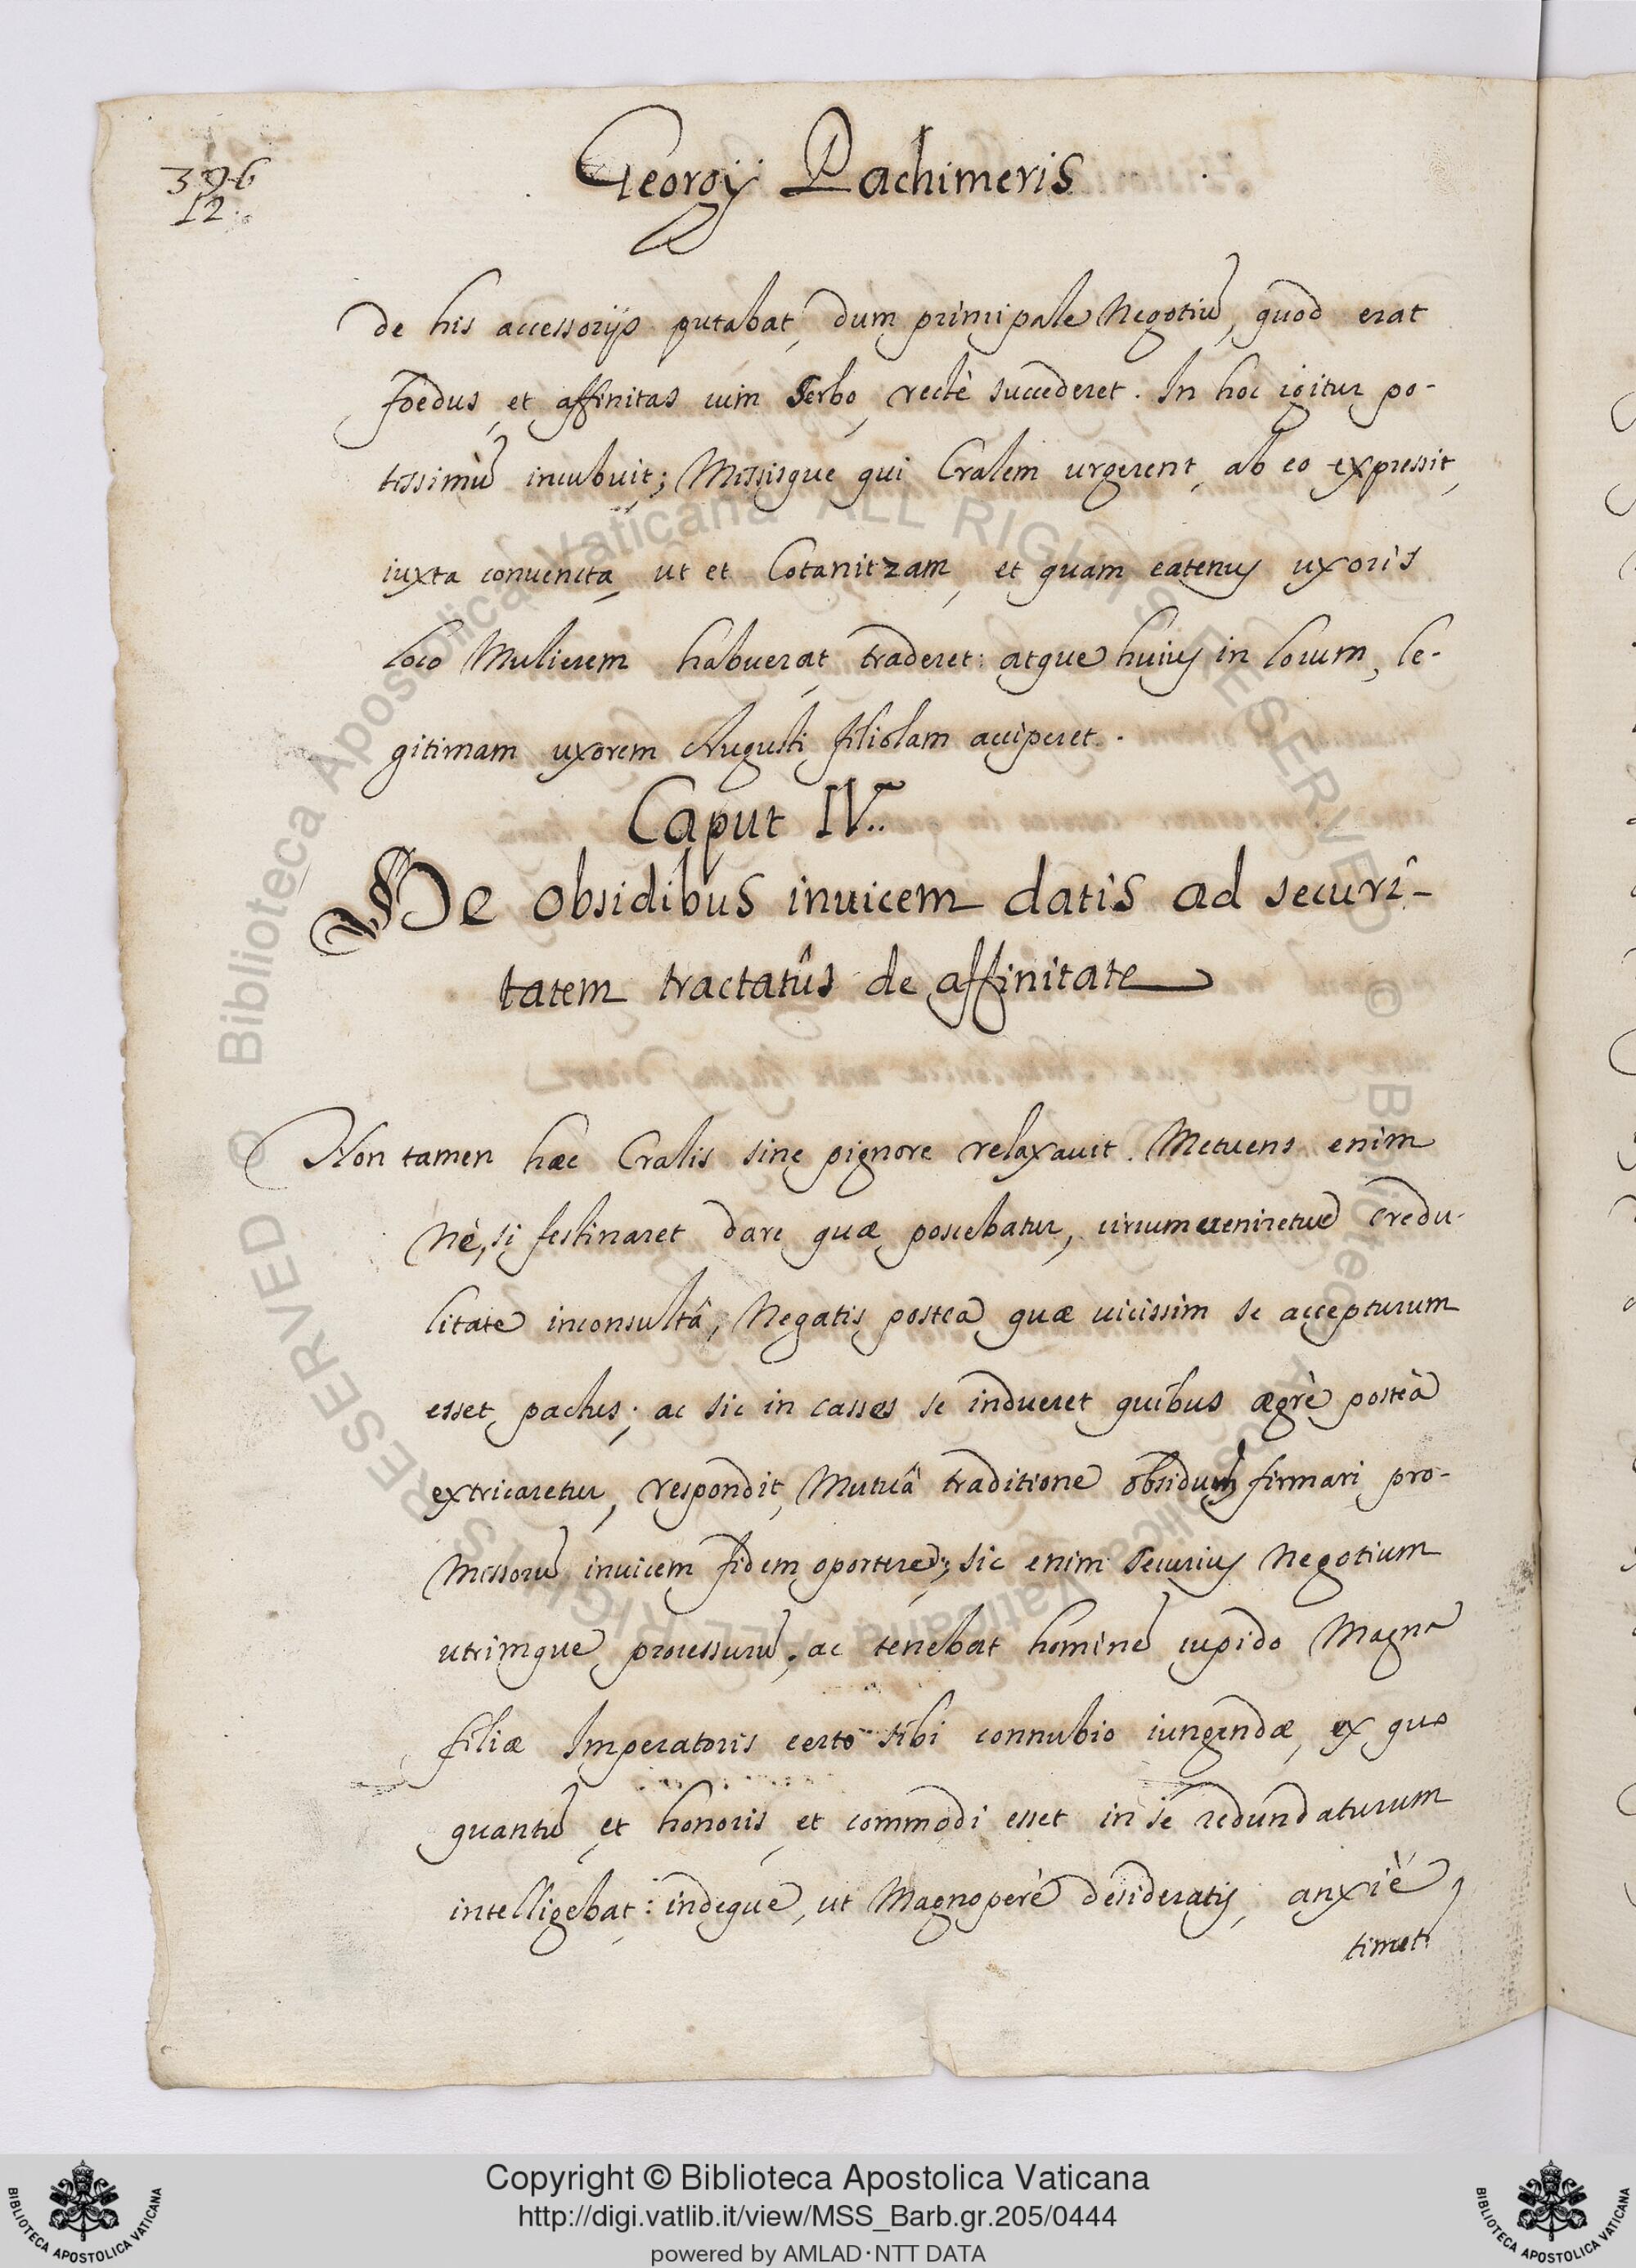 396
12.
Georgij Pachimeris
de his accessorijs putabat, dum principale Negotiũ, quod erat
foedus, et affinitas cum Serbo, rectè succederet. In hoc igitur po-
tissimũ incubuit; Missisque qui Cralem urgerent, ab eo expressit,
iuxta conuenta, ut et Cotanitzam, et quam eatenus uxoris
loco Mulierem habuerat, traderet: atque huius in locum, le-
gitimam uxorem Augusti filiolam acciperet.
Caput IV.
De obsidibus inuicem datis ad securi-
tatem tractatûs de affinitate
Non tamen hæc Cralis sine pignore relaxauit. Metuens enim
Nè, si festinaret dare quæ poscebatur, circumueniretur credu-
litate inconsultâ, Negatis postea quæ uicissim se accepturum
esset pactus; ac sic in casses se indueret quibus ægrè posteà
extricaretur, respondit, Mutuâ traditione obsidum firmari pro-
missorũ inuicem fidem oportere; sic enim Securius Negotium
utrimque processurũ. ac tenebat hominẽ cupido Magna
filiæ Imperatoris certo sibi connubio iungendæ, ex quo
quantũ et honoris, et commodi esset in se redundaturum
intelligebat: indeque, ut Magnoperè desideratis, anxiè
timet
© Biblioteca Apostolica Vaticana ALL RIGHTS RESERVED
© Biblioteca Apostolica Vaticana ALL RIGHTS RESERVED
Copyright © Biblioteca Apostolica Vaticana
http://digi.vatlib.it/view/MSS_Barb.gr.205/0444
powered by AMLAD·NTT DATA
BIBLIOTECA APOSTOLICA VATICANA
BIBLIOTECA APOSTOLICA VATICANA